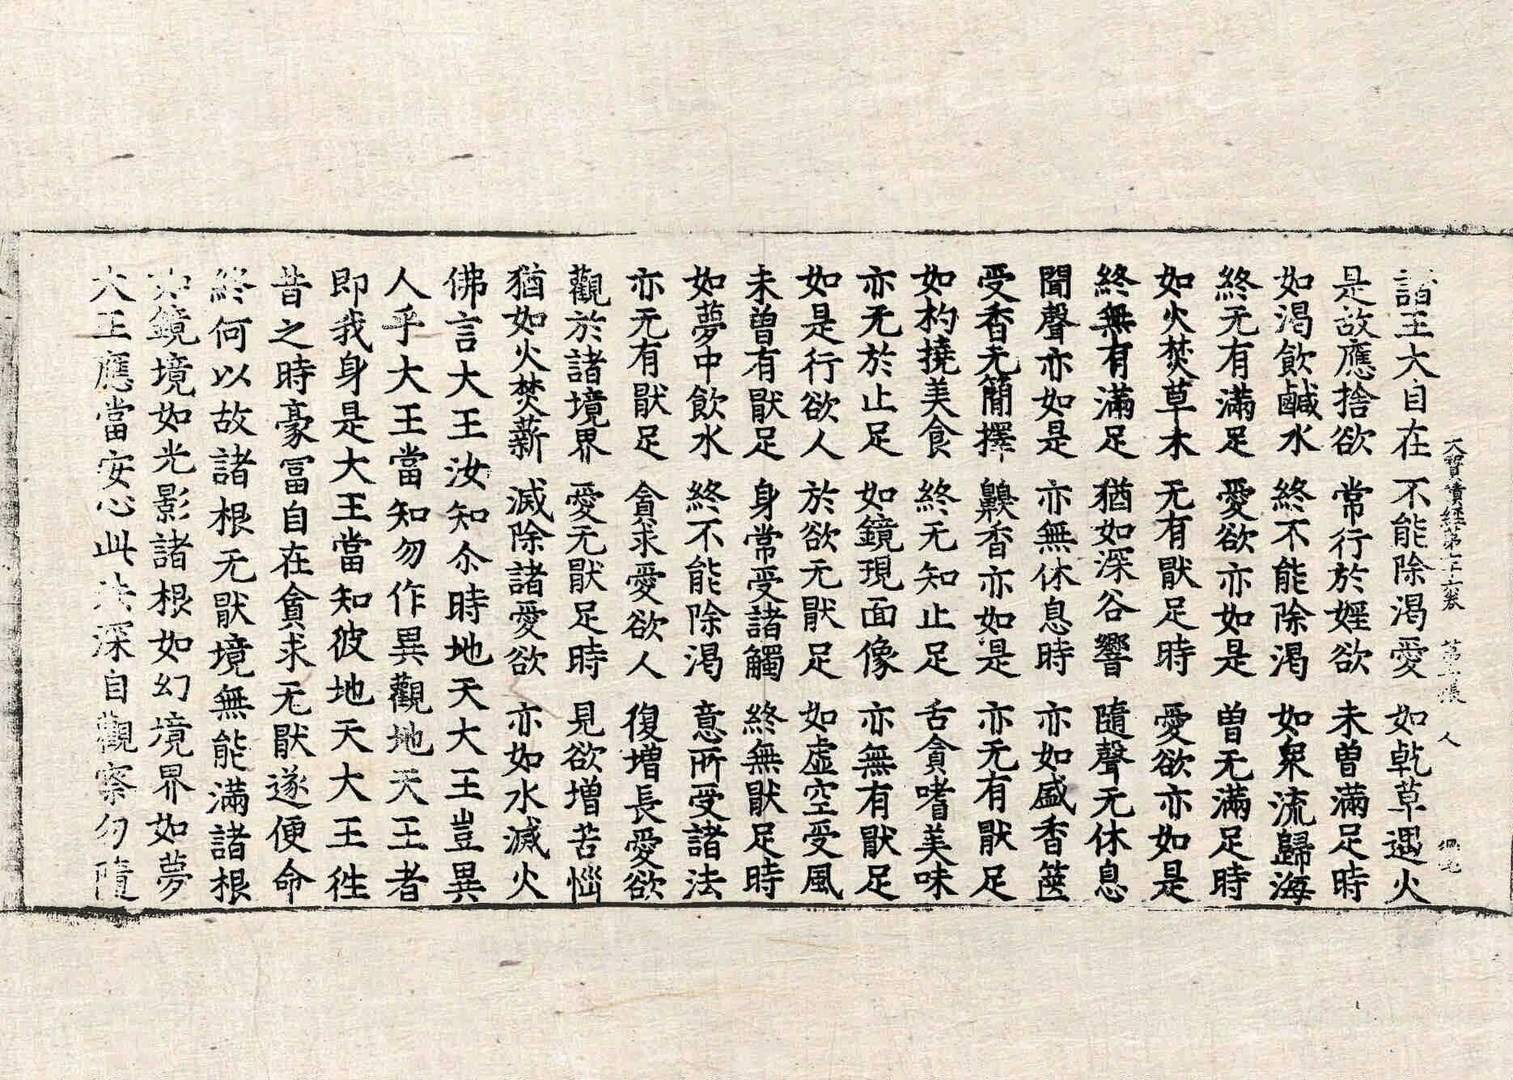 大寶積經第七十六卷 第五張 人
諸王大自在 不能除渴愛 如乾草遇火
是故應捨欲 常行於婬欲 未曾滿足時
如渴飲鹹水 終不能除渴 如泉流歸海
終无有滿足 愛欲亦如是 曾无滿足時
如火焚草木 无有猒足時 愛欲亦如是
終無有滿足 猶如深谷響 隨聲无休息
聞聲亦如是 亦無休息時 亦如盛香篋
受香无簡擇 齅香亦如是 亦无有猒足
如杓撓美食 終无知止足 舌貪嗜美味
亦无於止足 如鏡現面像 亦無有猒足
如是行欲人 於欲无猒足 如虛空受風
未曾有猒足 身常受諸觸 終無猒足時
如夢中飲水 終不能除渴 意所受諸法
亦无有猒足 貪求愛欲人 復增長愛欲
觀於諸境界 愛无猒足時 見欲增苦惱
猶如火焚薪 滅除諸愛欲 亦如水滅火
佛言大王汝知尒時地天大王豈異
人乎大王當知勿作異觀地天王者
即我身是大王當知彼地天大王徃
昔之時豪冨自在貪求无猒遂便命
終何以故諸根无猒境無能滿諸根
如鏡境如光影諸根如幻境界如夢
大王應當安心此法深自觀察勿隨